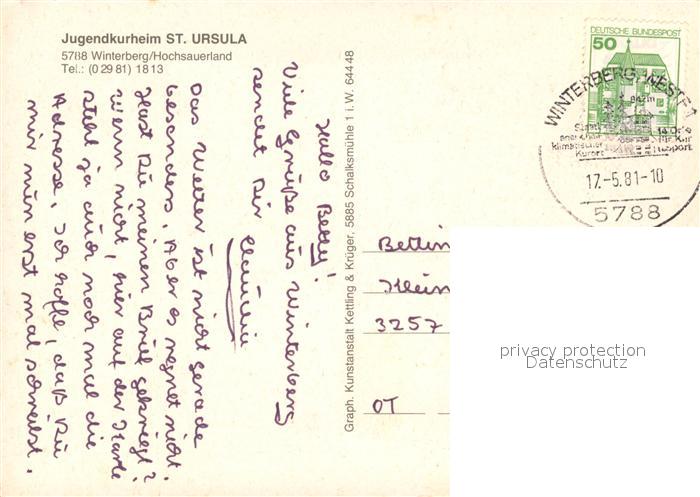 Jugendkurheim ST. URSULA
5788 Winterberg/Hochsauerland
Tel.: (0 29 81) 18 13
Hallo Betty!
Viele Grüße aus Winterberg
sendet Dir Claudia
Das Wetter ist nicht gerade
besonders. Aber es regnet nicht.
Hast Du meinen Brief gekriegt?
Wenn nicht, hier auf der Karte
steht ja auch noch mal die
Adresse. Ich hoffe, daß Du
mir nun erst mal schreibst.
Graph. Kunstanstalt Kettling & Krüger, 5885 Schalksmühle 1 i. W. 644 48
DEUTSCHE BUNDESPOST
50
WINTERBERG, WESTF 1
klimatischer
Kurort
17.-5.81-10
5788
Bettin
Klein
3257
OT
privacy protection
Datenschutz